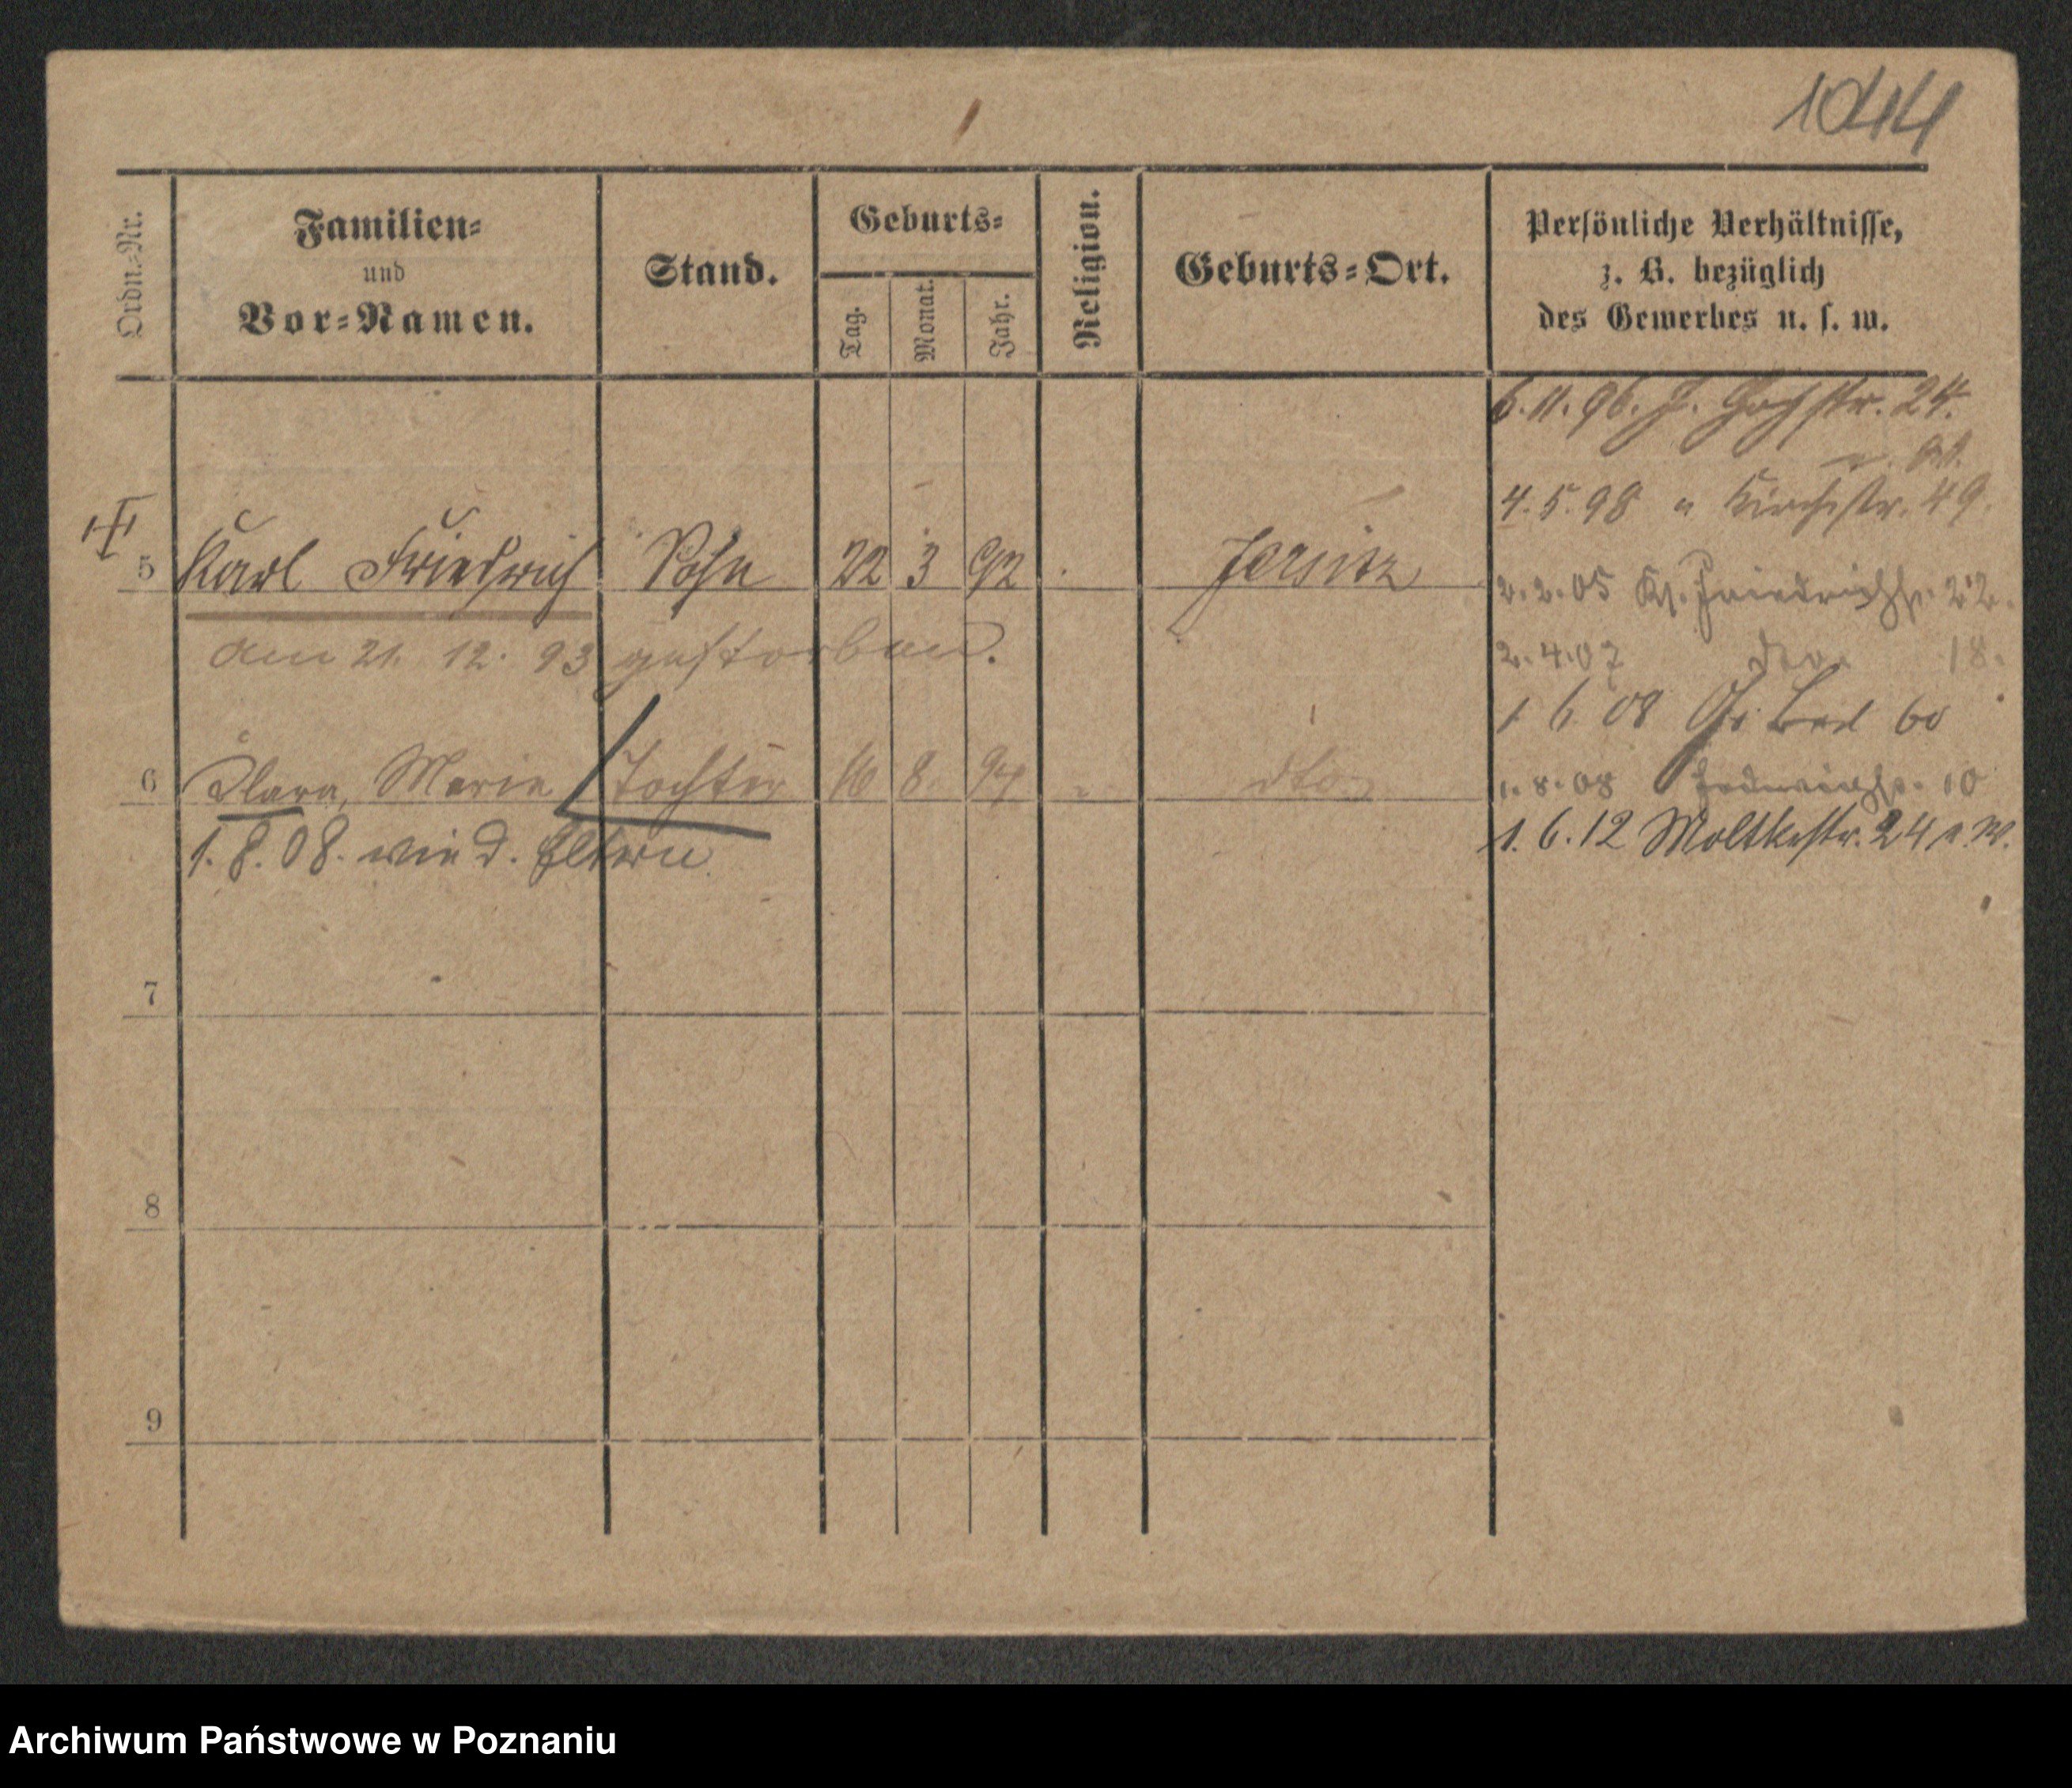 1044
Ordn.-Nr.
Familien-
und
Vor-Namen.
Stand.
Geburts-
Tag.
Monat.
Jahr.
Religion.
Geburts-Ort.
Persönliche Verhältnisse,
z. B. bezüglich
des Gewerbes u. s. w.
6.11.96. J. str. 24.
4.5.98 " Kirchstr. 49.
5 Karl Friedrich Sohn 22 3 92 Jersitz
2.2.05 Kl. Friedrichstr. 22.
am 21. 12. 93 gestorben.
2.4.07 dto 18.
1 6 08 Gr. Berl 60
6 Clara, Marie Tochter 16 8. 94 " dto
1.8.08 10
1.8.08. wie d. Eltern.
1.6.12 Moltkestr. 24 n. W.
7
8
9
Archiwum Państwowe w Poznaniu